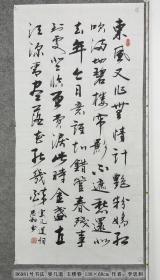 東風又作無情計艷粉嬌紅
吹滿地碧樓帘影不遮愁還似
去年今日意誰知錯管春殘事
到處登臨曾費淚此時金盞直
須深看盡落花能几醉 晏几道词
06081号书法 晏几道 玉楼春 138×68cm 作者：李思和